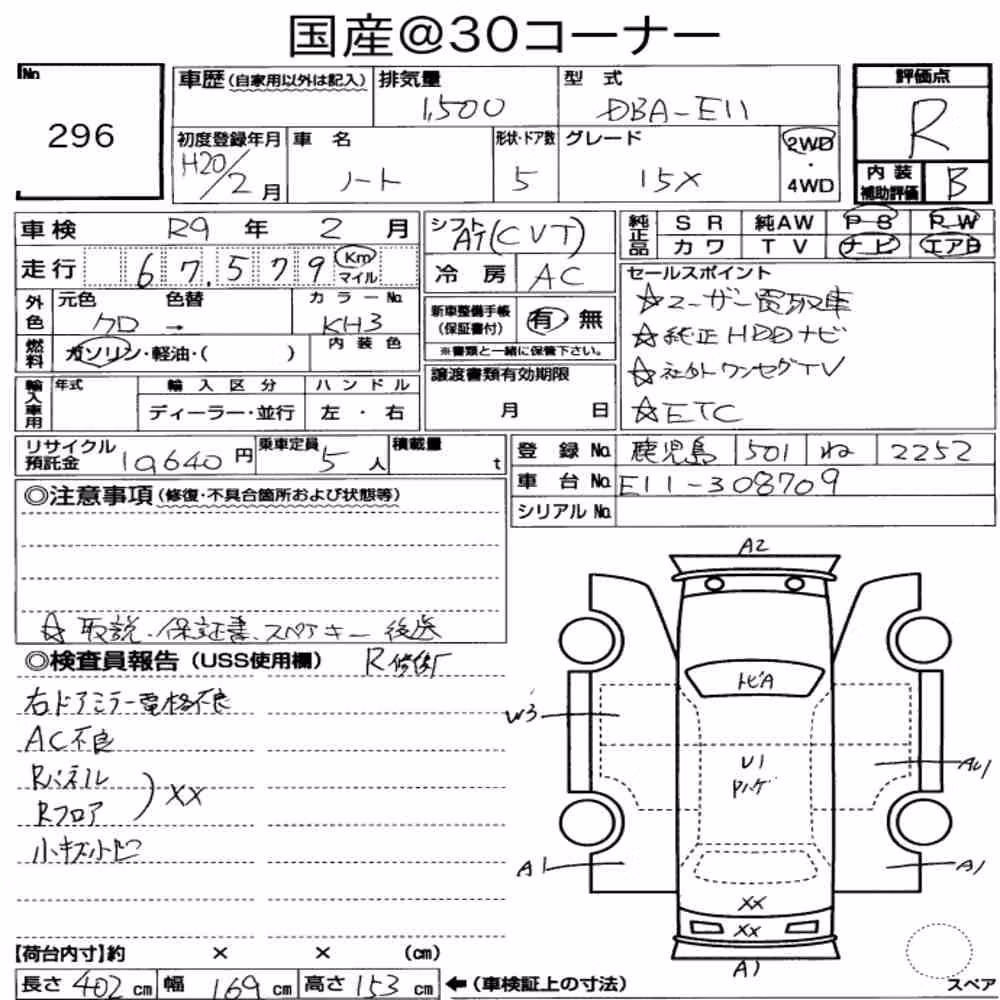 国産@30コーナー
No.
296
車歴(自家用以外は記入)
排気量
1,500
型式
DBA-E11
評価点
R
初度登録年月
H20/2月
車名
ノート
形状・ドア数
5
グレード
15X
2WD
・
4WD
内装
補助評価
B
車検 R9年 2月
走行 67,579 Km
マイル
シフト
AT(CVT)
冷房 AC
純正品
SR 純AW PS PW
カワ TV ナビ エアB
外色
元色 色替
クロ →
カラーNo.
KH3
燃料
ガソリン・軽油・( )
内装色
新車整備手帳
(保証書付)
有 無
※書類と一緒に保管下さい。
セールスポイント
☆ユーザー買取車
☆純正HDDナビ
☆社外ワンセグTV
☆ETC
輸入車用
年式
輸入区分
ディーラー・並行
ハンドル
左・右
譲渡書類有効期限
月 日
リサイクル
預託金 10640円
乗車定員
5人
積載量
t
登録No. 鹿児島 501 ね 2252
車台No. E11-308709
シリアルNo.
◎注意事項(修復・不具合箇所および状態等)
☆取説、保証書、スペアキー後送
◎検査員報告(USS使用欄) R修復
右ドアミラー電格不良
AC不良
Rパネル
Rフロア
)XX
小キズ小凹
A2
トビA
W3
U1
AU1
A1
A1
XX
XX
A1
スペア
【荷台内寸】約 × × (cm)
長さ 402cm 幅 169cm 高さ 153cm ←(車検証上の寸法)